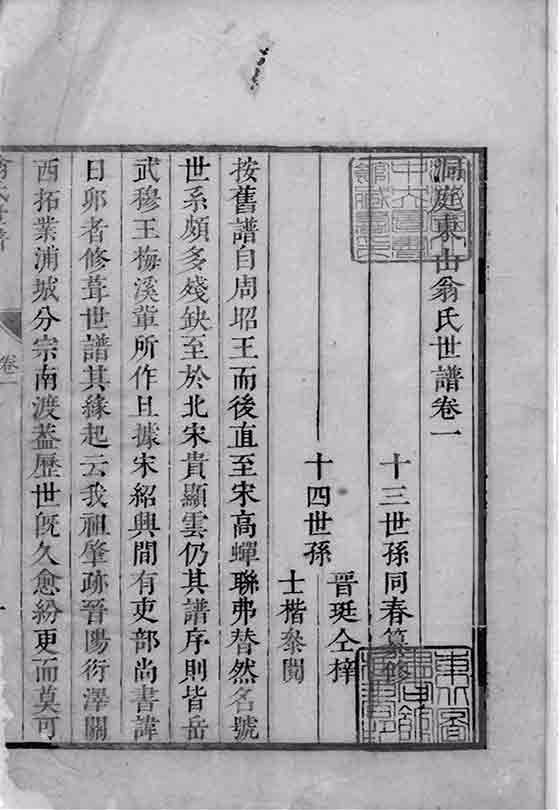 洞庭東山翁氏世譜卷一
十三世孫同春纂修
十四世孫
晉珽仝梓
士楷叅閱
按舊譜自周昭王而後直至宋高蟬聯弗替然名號
世系頗多殘缺至於北宋貴顯雲仍其譜序則皆岳
武穆王梅溪軰所作且據宋紹興間有吏部尚書諱
日邜者修葺世譜其緣起云我祖肇跡晉陽衍澤關
西拓業浦城分宗南渡葢歷世旣久愈紛更而莫可
卷一